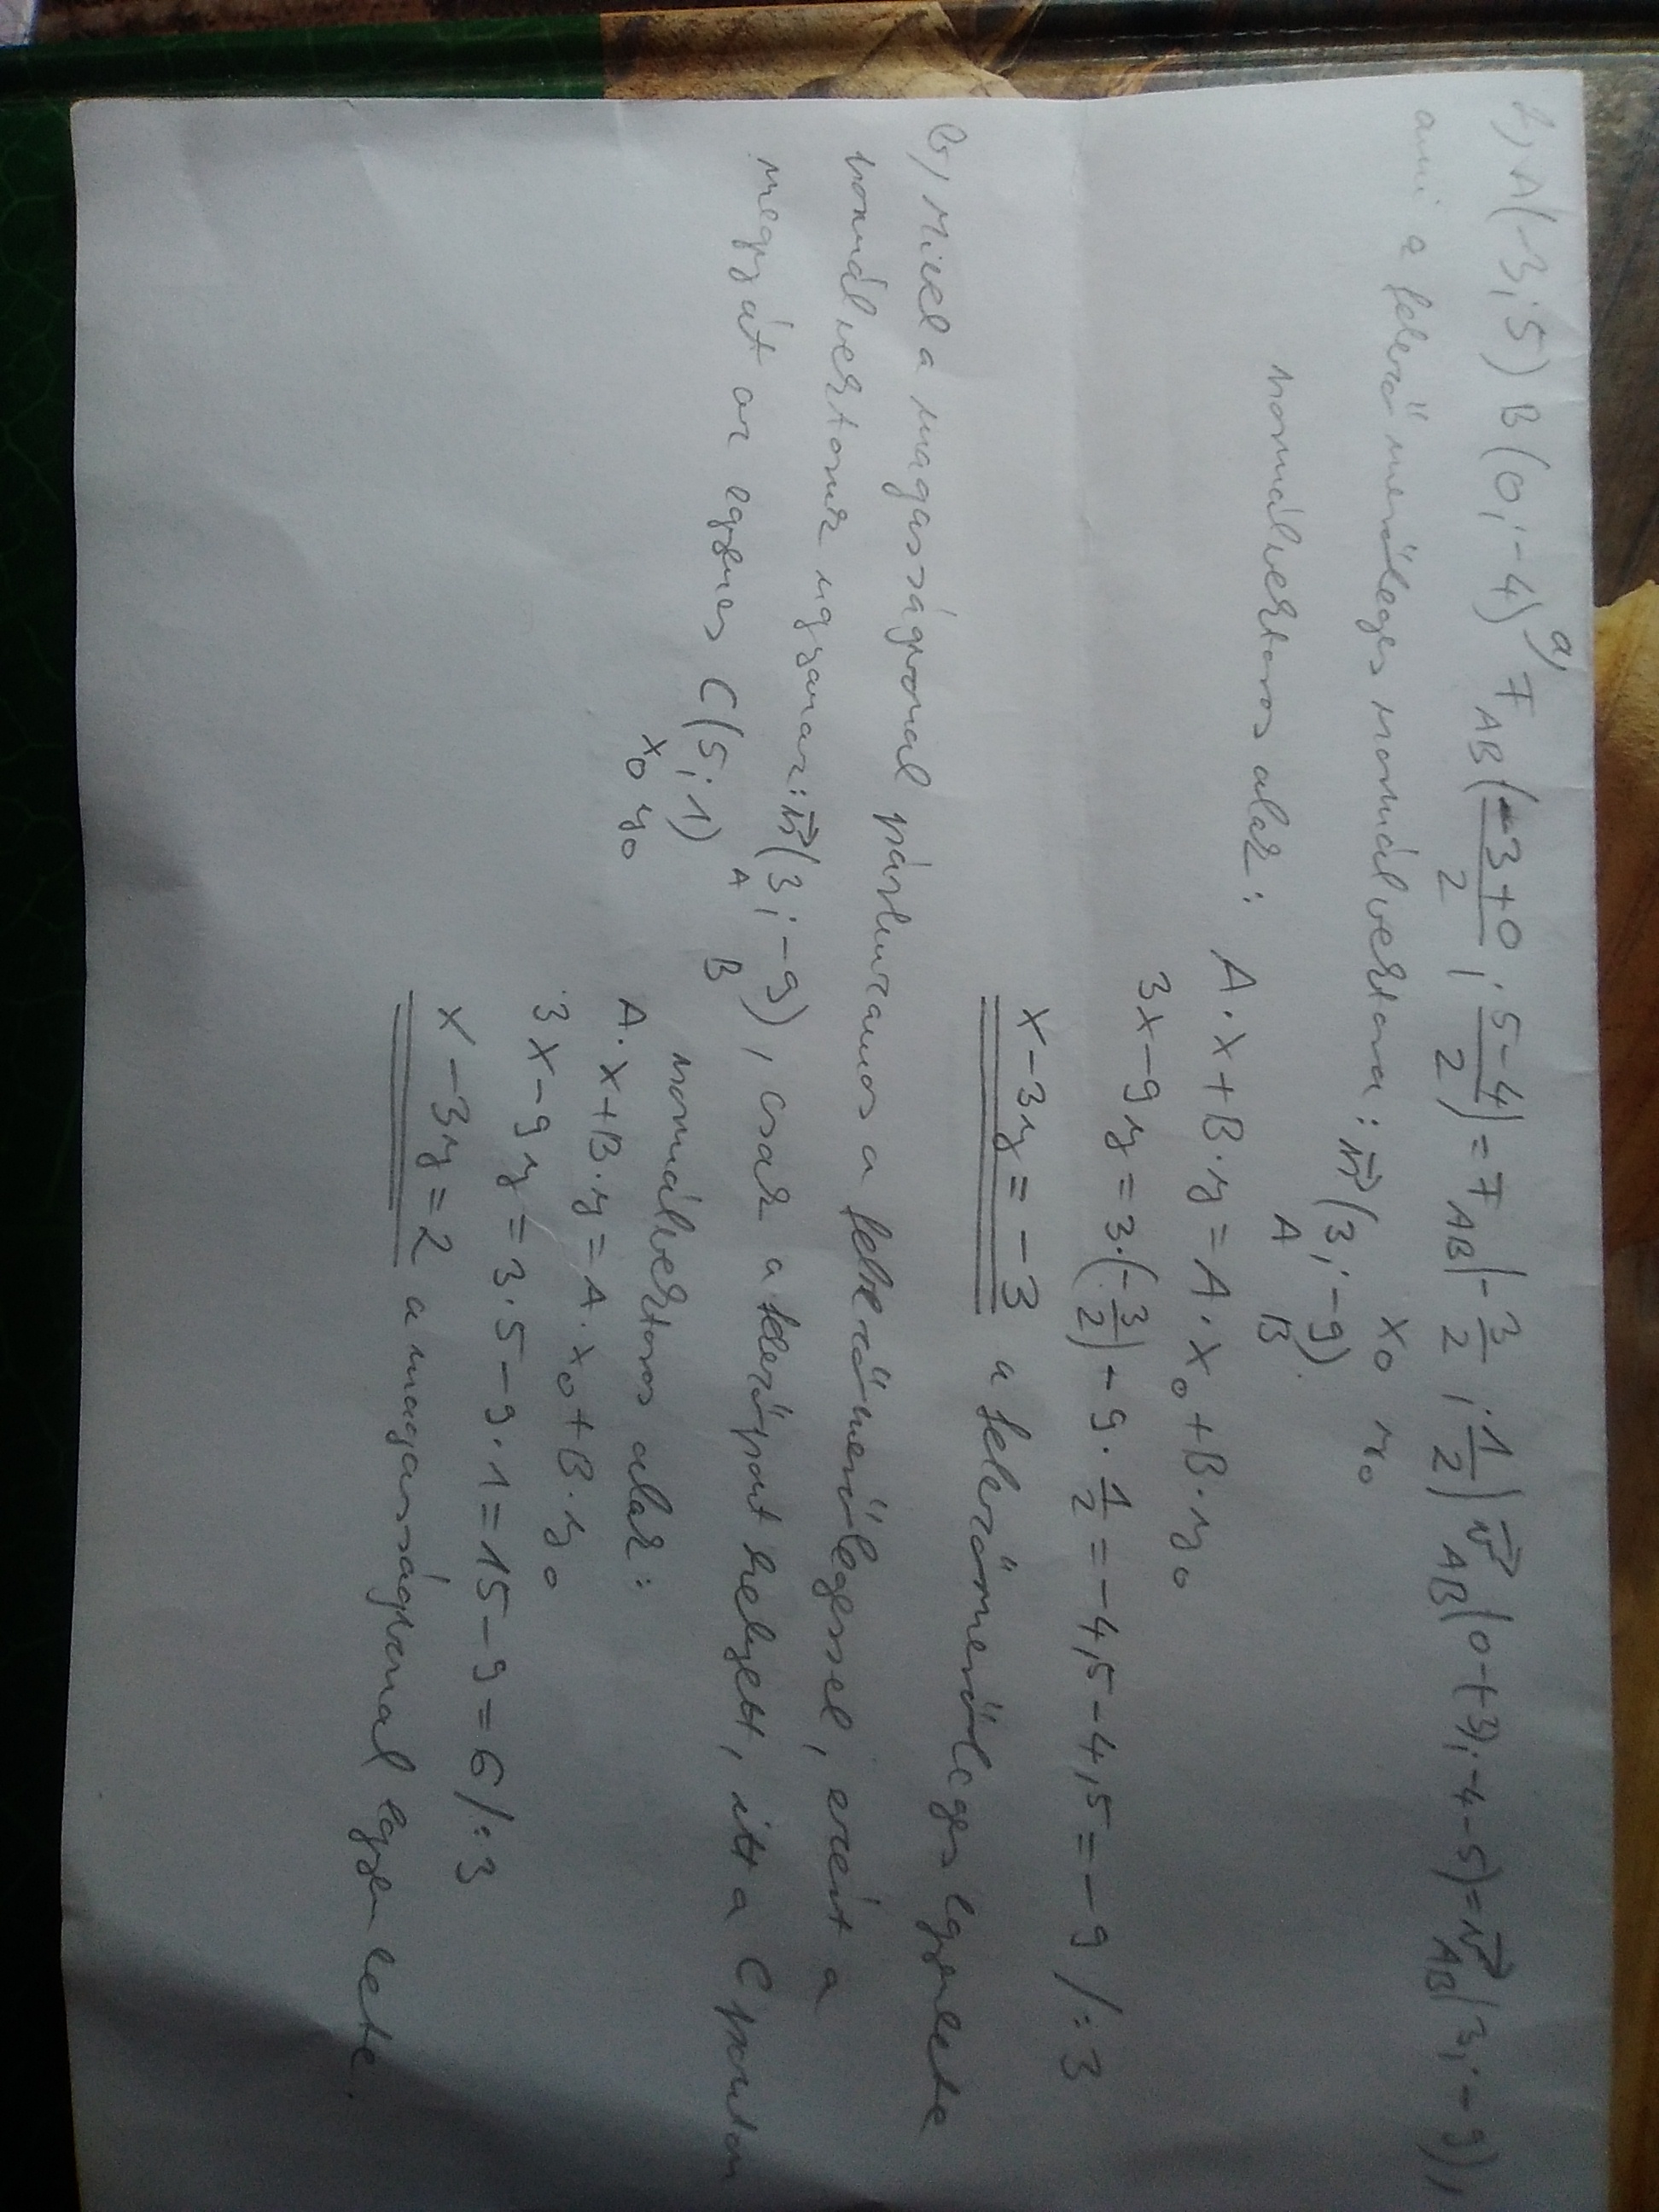 2, A(-3;5) B(0;-4) a, F AB(-3+0/2 ; 5-4/2) = F AB(-3/2 ; 1/2) v⃗ AB(0-(-3);-4-5)=v⃗ AB(3;-9),
x0 y0
ami a felező merőleges normálvektora: n⃗(3;-9).
A B
normálvektoros alak: A·x+B·y=A·x0+B·y0
3x-9y=3·(-3/2)-9·1/2=-4,5-4,5=-9/:3
x-3y=-3 a felezőmerőleges egyenlete
b, Mivel a magasságvonal párhuzamos a felezőmerőlegessel, ezért a
normálvektoruk ugyanaz: n⃗(3;-9), csak a felezőpont helyett, itt a C ponton
A B
megy át az egyenes C(5;1) normálvektoros alak:
x0 y0
A·x+B·y=A·x0+B·y0
3x-9y=3·5-9·1=15-9=6/:3
x-3y=2 a magasságvonal egyenlete.